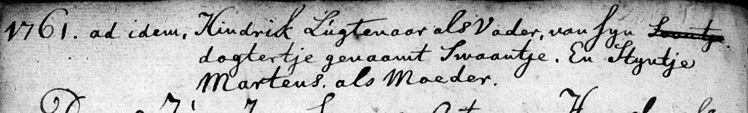 1761. ad idem, Hindrik Lugtenaar als Vader, van syn
dogtertje genaamt Swaantje. En Styntje
Martens. als Moeder.